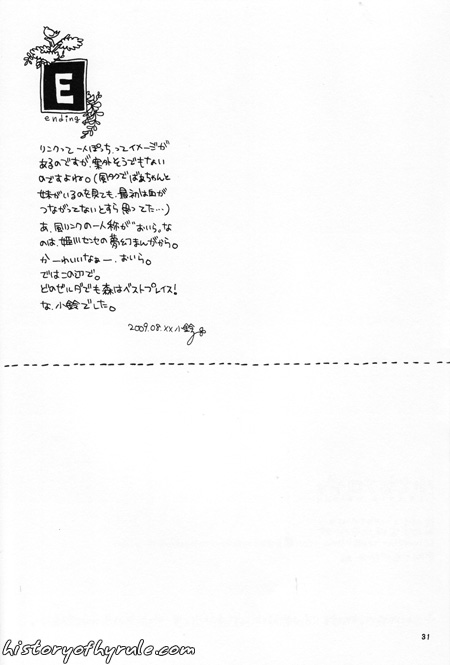 E
ending
リンクって一人ぽっちってイメージが
あるのですが、案外そうでもない
のですよね。(風タクでばあちゃんと
妹がいるのを見ても、最初は血が
つながってないとすら思ってた…)
あ、風リンクの一人称が"おいら"な
のは、姫川センセの夢幻まんがから。
かーわいいなぁー、おいら。
ではこの辺で。
どのゼルダでも森はベストプレイス!
な、小鈴でした。
2009.08.xx 小鈴
31
historyofhyrule.com